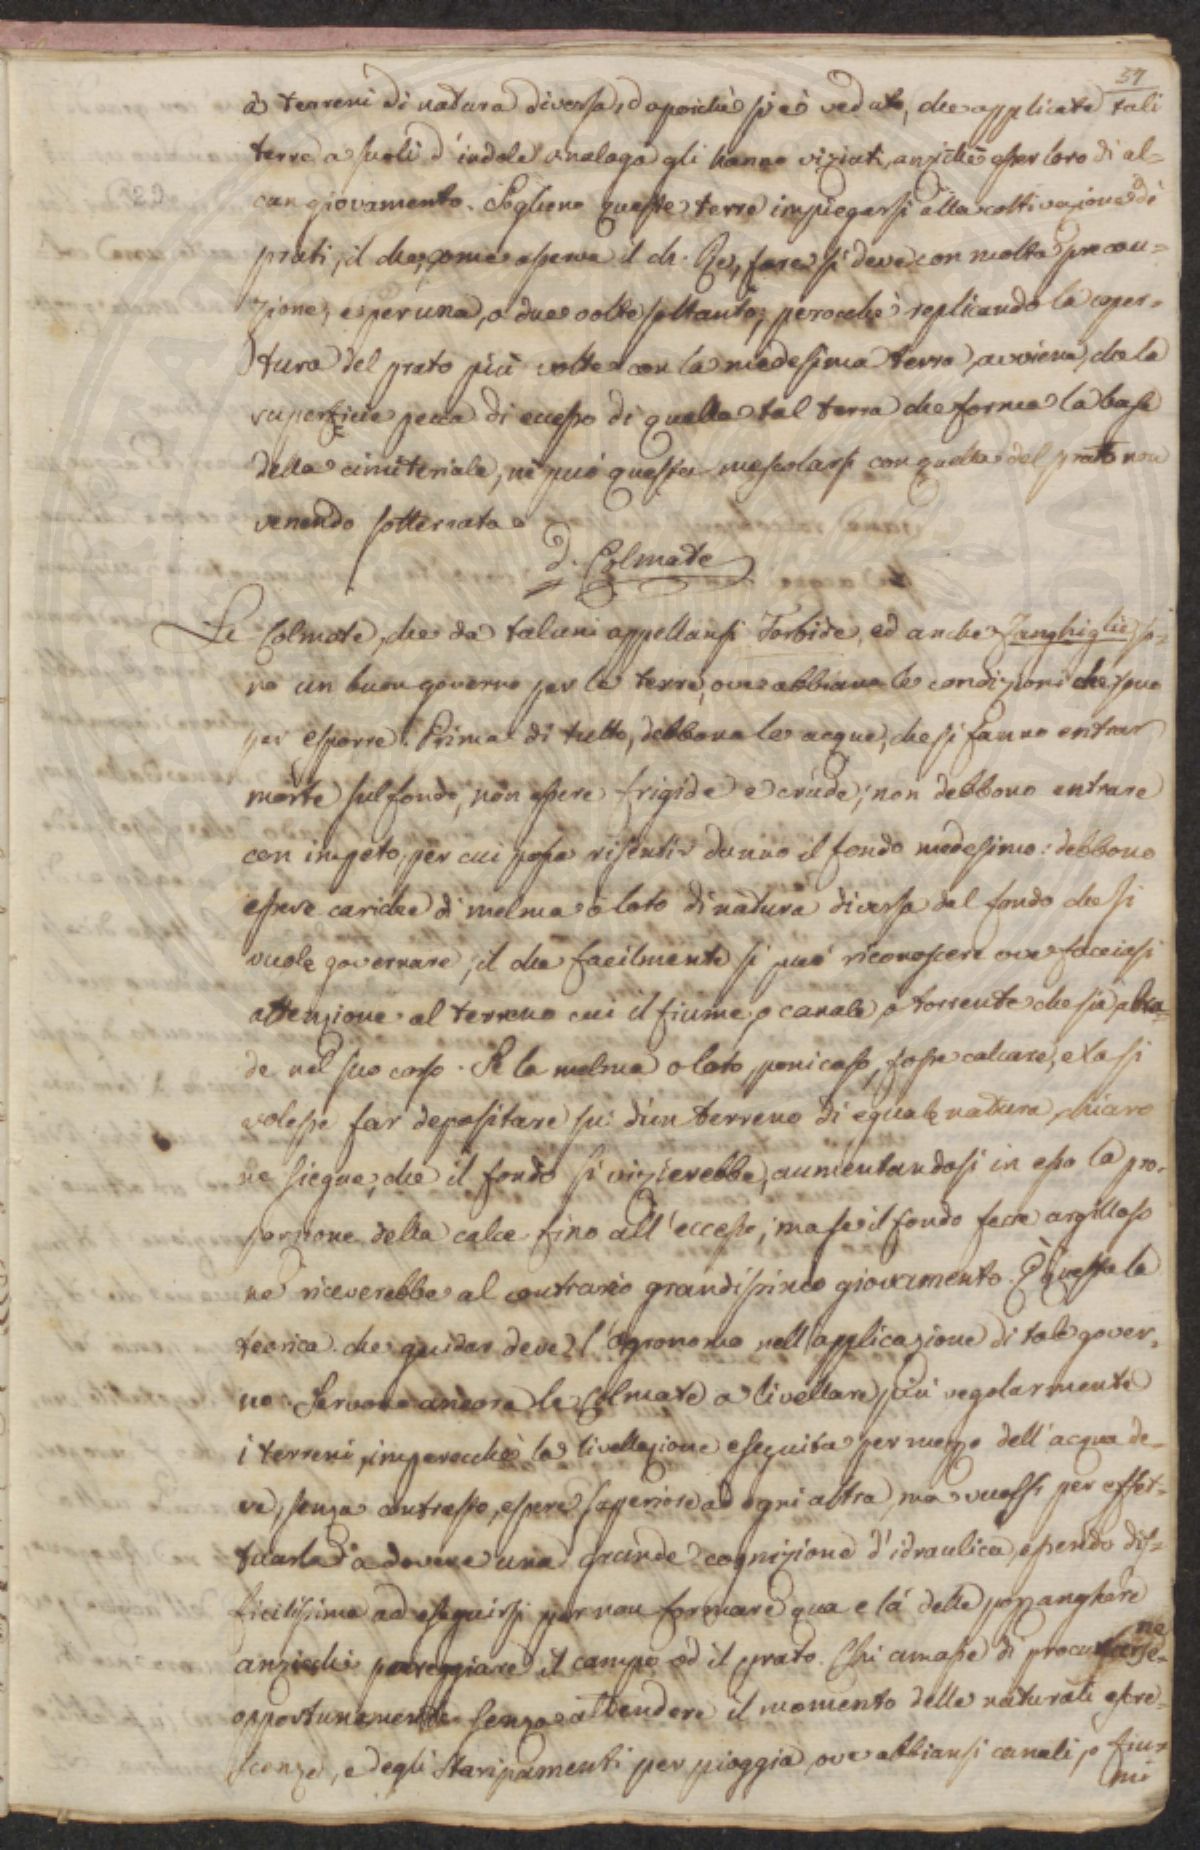 57
à terreni di natura diversa, dapoichè si è veduto, che applicate tali
terre a suoli d'indole analaga gli hanno viziati, anzichè esser loro di al=
cun giovamento. Sogliono queste terre impiegarsi alla coltivazione di
prati, il che, come osserva il ch. Re, fare si deve con molta precau=
zione, e per una, o due volte soltanto; perocchè replicando la coper=
tura del prato più volte con la medesima terra, avviene, che la
superficie pecca di eccesso di quella tal terra che forma la base
della cimiteriale, nè può questa mescolarsi con quella del prato non
venendo sotterrata.
d. Colmate
Le Colmate, che da taluni appellansi Torbide, ed anche Fanghiglie, so=
no un buon governo per le terre, ove abbiano le condizioni che sono
per esporre. Prima di tutto, debbono le acque, che si fanno entrar
morte sul fondo, non essere frigide e crude; non debbono entrare
con impeto, per cui possa risentir danno il fondo medesimo: debbono
essere cariche di melma o loto di natura diversa dal fondo che si
vuole governare, il che facilmente si può riconoscere ove facciasi
attenzione al terreno cui il fiume, o canale, o torrente che sia, abra=
de nel suo corso. Se la melma o loto, ponicaso, fosse calcare, e la si
volesse far depositare su d'un terreno di eguale natura, chiaro
ne siegue, che il fondo si vizierebbe, aumentandosi in esso la pro=
porzione della calce fino all'eccesso; ma se il fondo fosse argilloso
ne riceverebbe al contrario grandissimo giovamento. È questa la
teorica che guidar deve l'agronomo nell'applicazione di tale gover=
no. Servono ancora le Colmate a livellare più regolarmente
i terreni, imperocchè la livellazione eseguita per mezzo dell'acqua de=
ve, senza contrasto, essere superiore ad ogni altra, ma vuolsi per effet=
tuarla a dovere una grande cognizione d'idraulica, essendo dif=
ficilissima ad eseguirsi per non formare qua e là delle pozzanghere
anzichè pareggiare il campo od il prato. Chi amasse di procurarse=
ne
opportunamente senza attendere il momento delle naturali escre=
scenze, e degli straripamenti per pioggia, ove abbiansi canali, o fiu=
mi